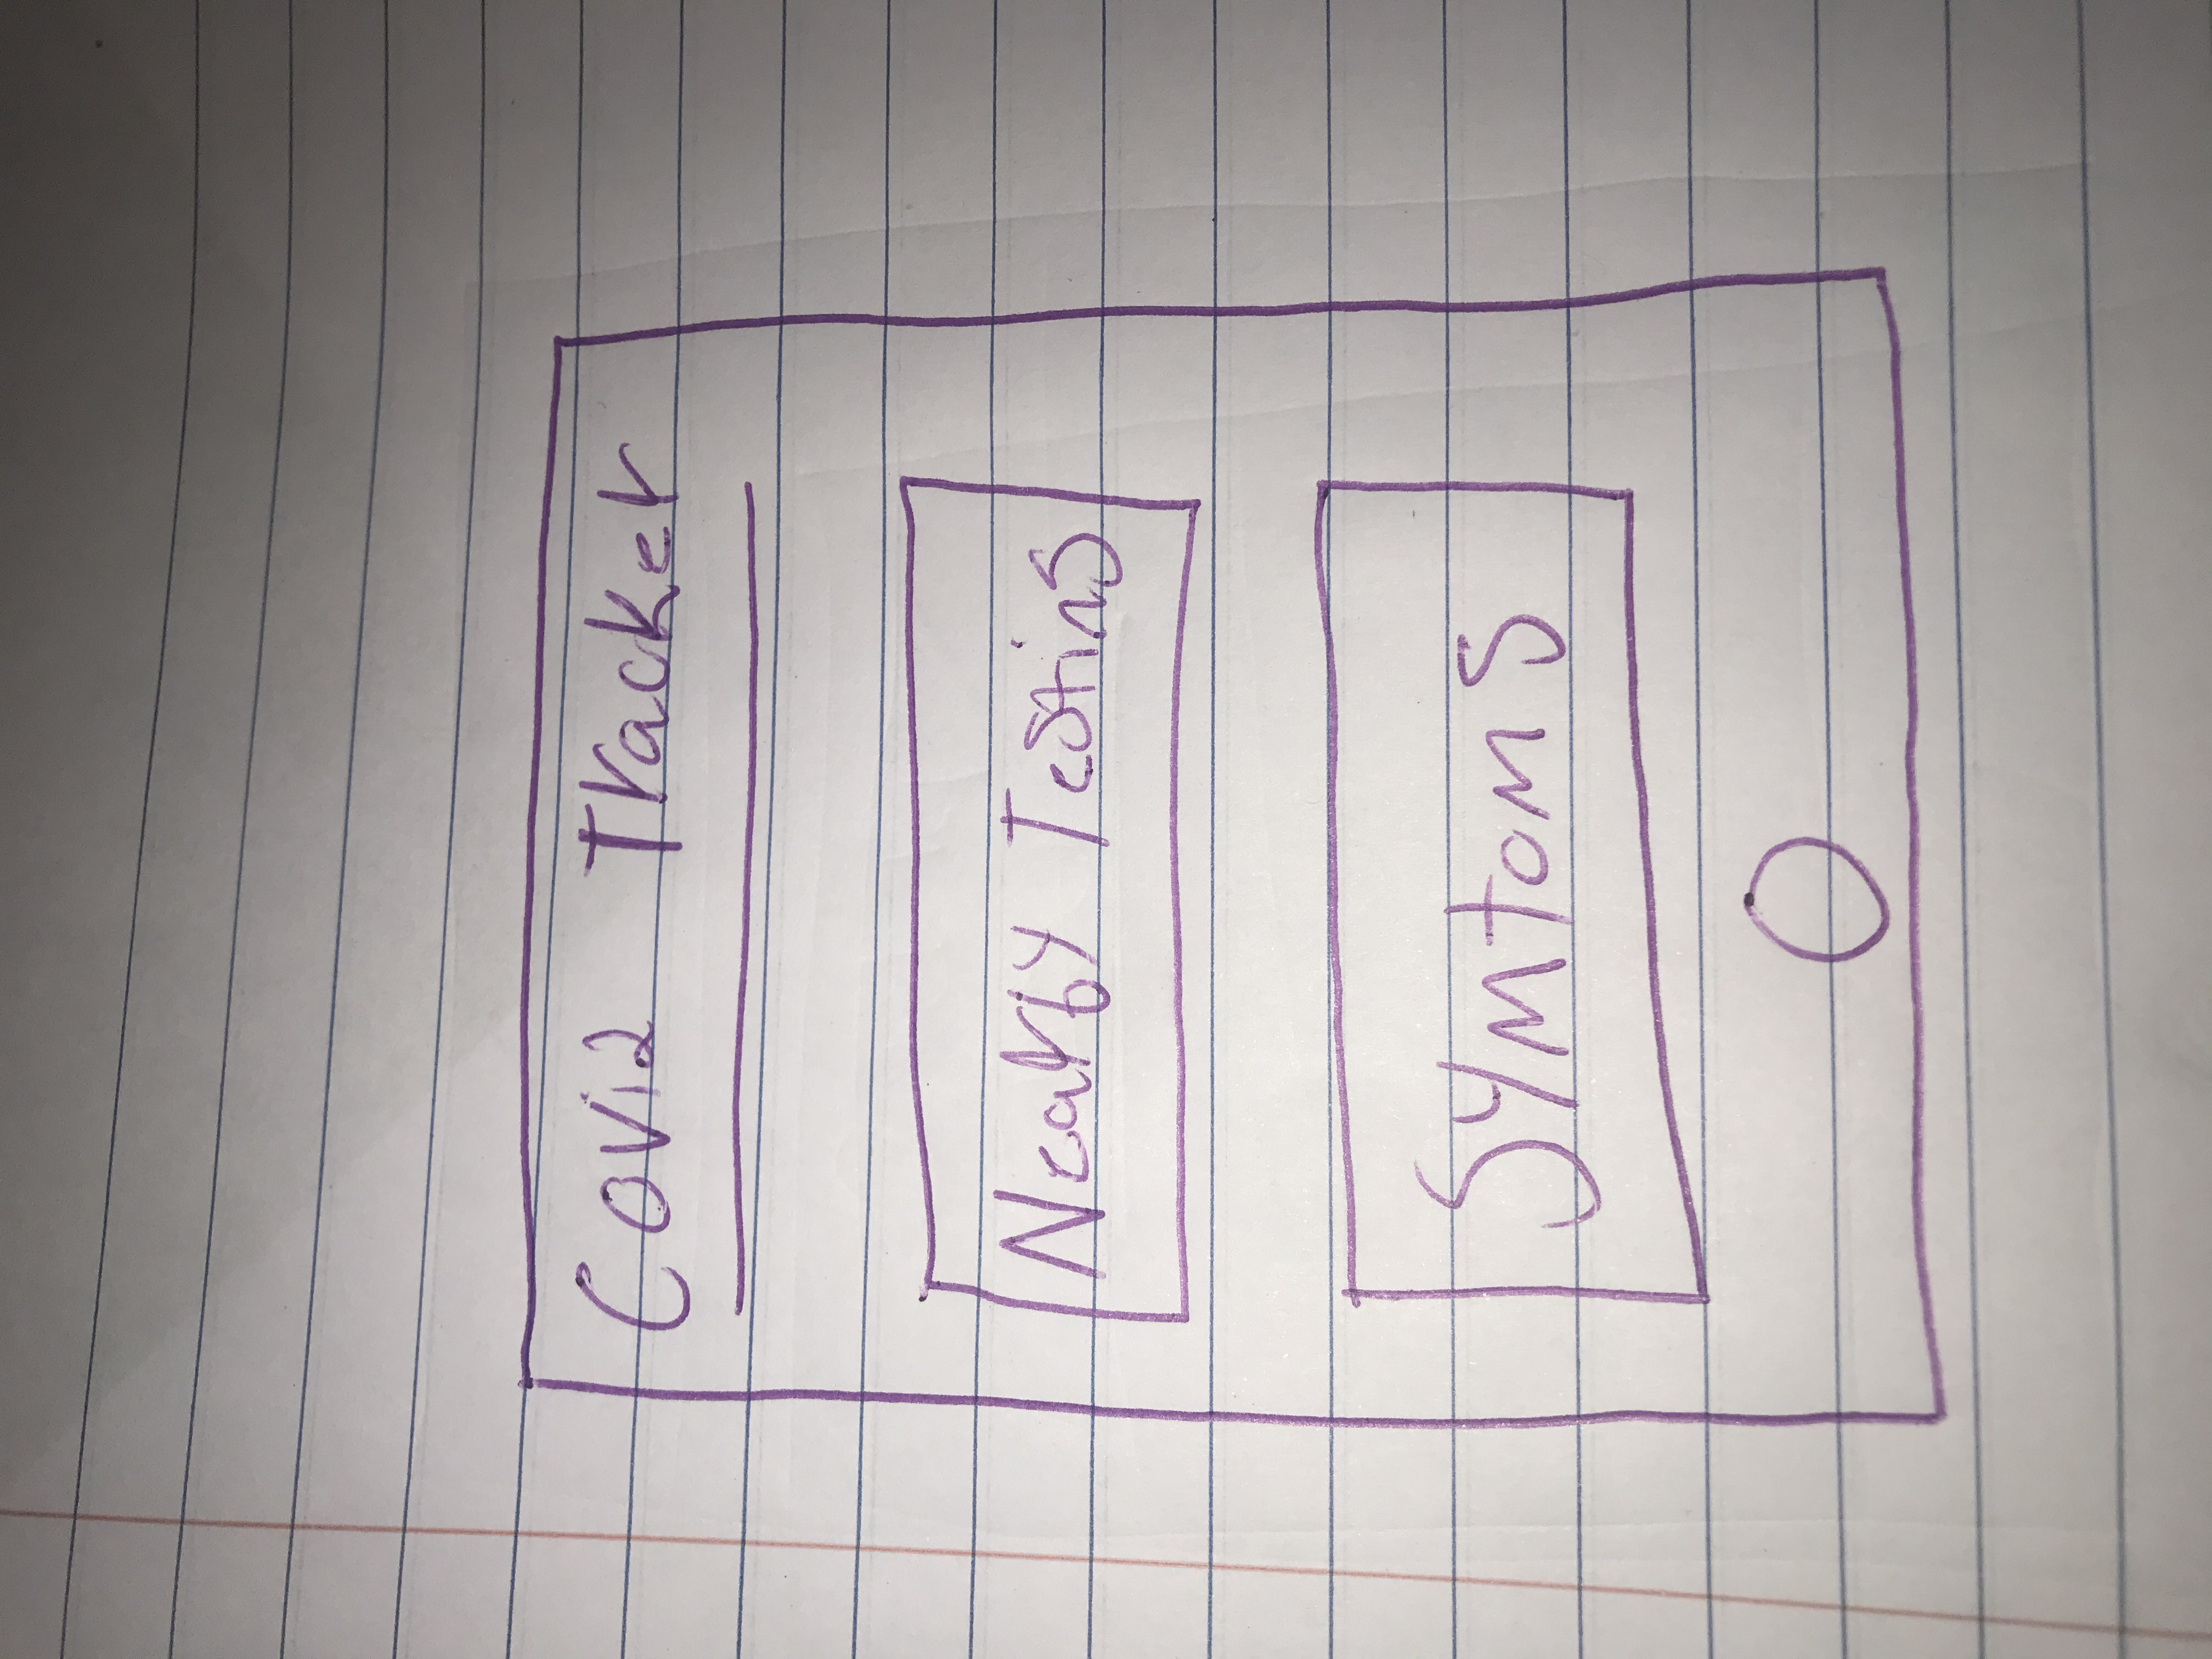 Covid Tracker
Nearby Testing
Symtoms